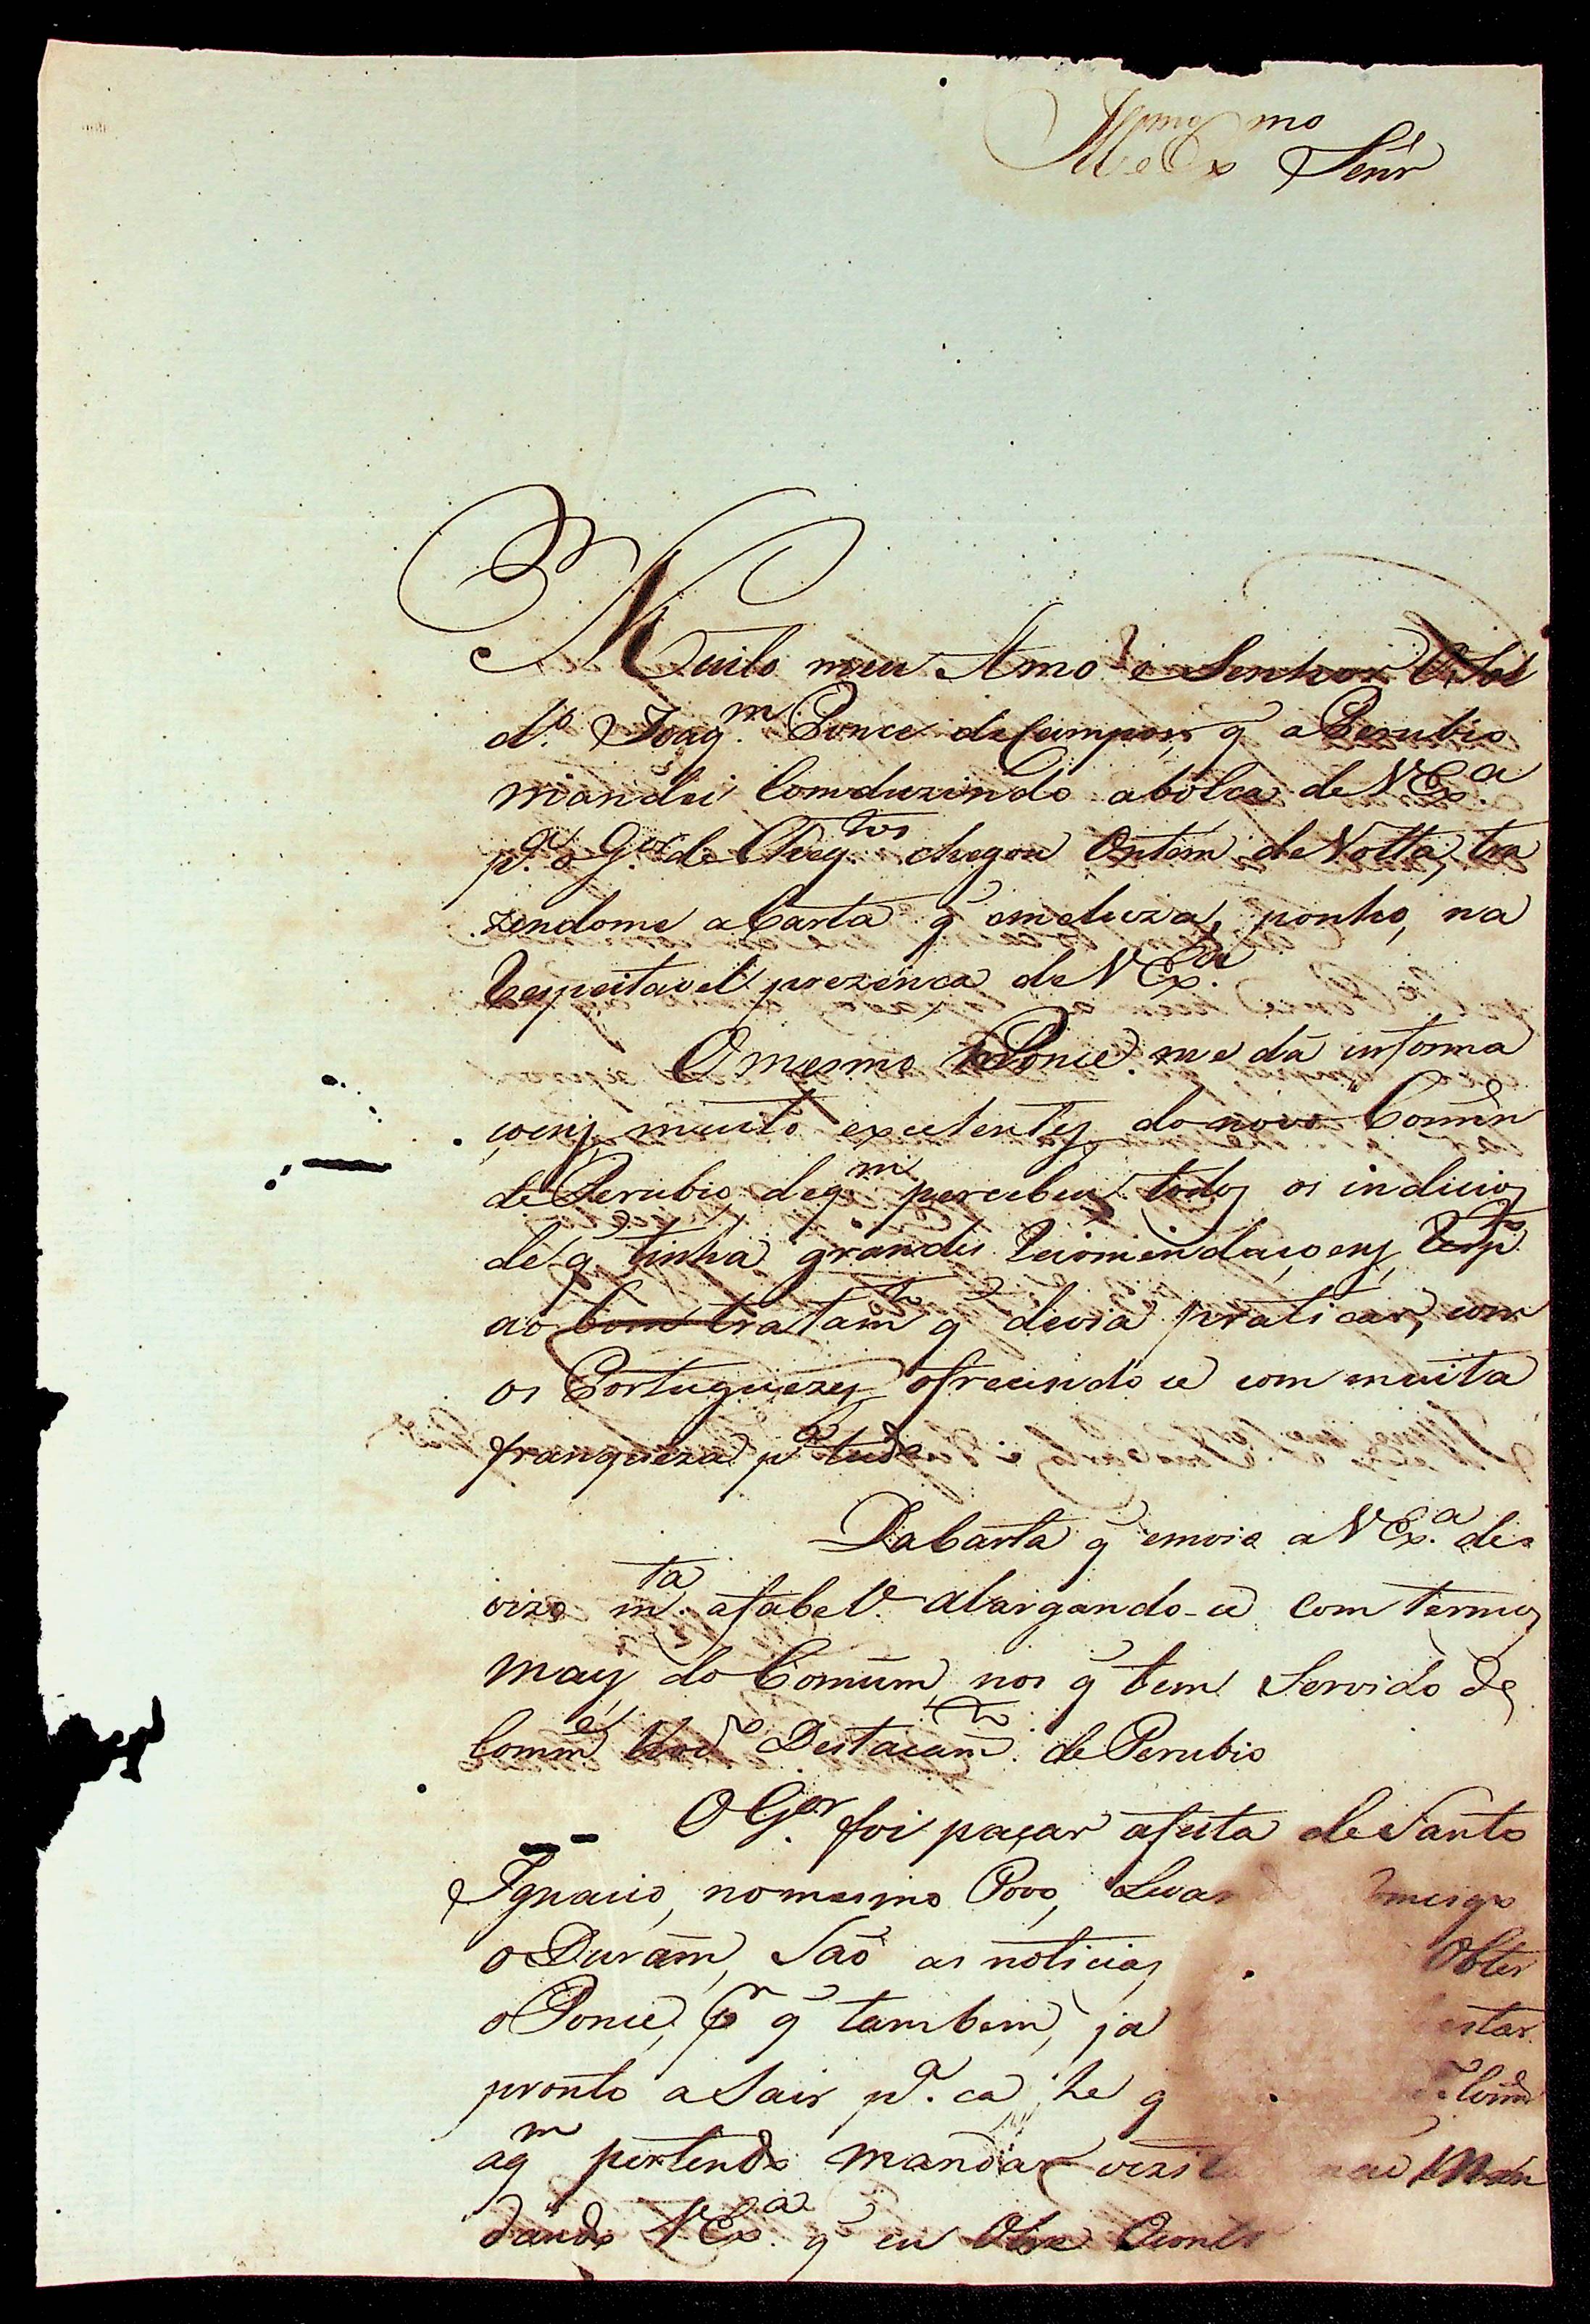 Illmo e Exmo Senr
Muito meu Amo e Senhor O Sol
do. Joaqm. Ponce de Campos q̃ a Perubio
mandei Comduzindo a bolca de V Exa.
pa. o Gor. de Chiqtos chegou Ontem de Volta, tra
zendome a Carta q̃ emcluza, ponho, na
Respeitavel prezenca de V Exa.
O mesmo Ponce. me dá informa
çoens muito excelentes do novo Comn̄
de Perubio, de qm percebeu todos os indicios
de q̃ tinha grandes Recomendaçoens, Respto
ao bom tratamto q̃ devia praticar, com
os Portuguezes ofrecindo ce com muita
franqueza pa tudo
Da Carta q̃ emvio a V Exa. de=
vizo mta. afabel. alargando-ce com termos
mays do Comum, nos q̃ tem Servido de
Comme no do Destacamto. de Perubio
O Gor. foi paçar a festa de Santo
Ignacio, no mesmo Povo, Levan migo
o Duram, São as noticias Obter
o Ponce, pr q̃ tambem, ja estar
pronto a Sair pa. ca, he q Comd
a qm pertendo mandar vizita Man
dando V Exa. q̃ eu Obre